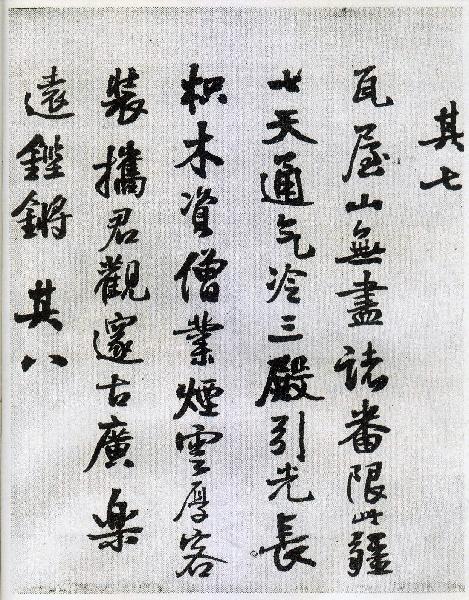 其七
瓦屋山無盡諸番限此疆
天通气冷三殿引光長
枳木資僧業煙雲厚客
裝攜君觀邃古廣楽
遠鏗鏘 其八